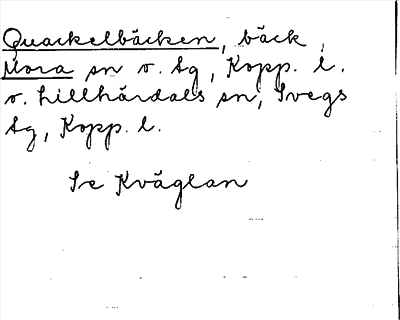 Quackelbäcken, bäck,
Mora sn o. tg, Kopp. l.
o. Lillhärdals sn, Svegs
tg, Kopp. l.
Se Kväglan